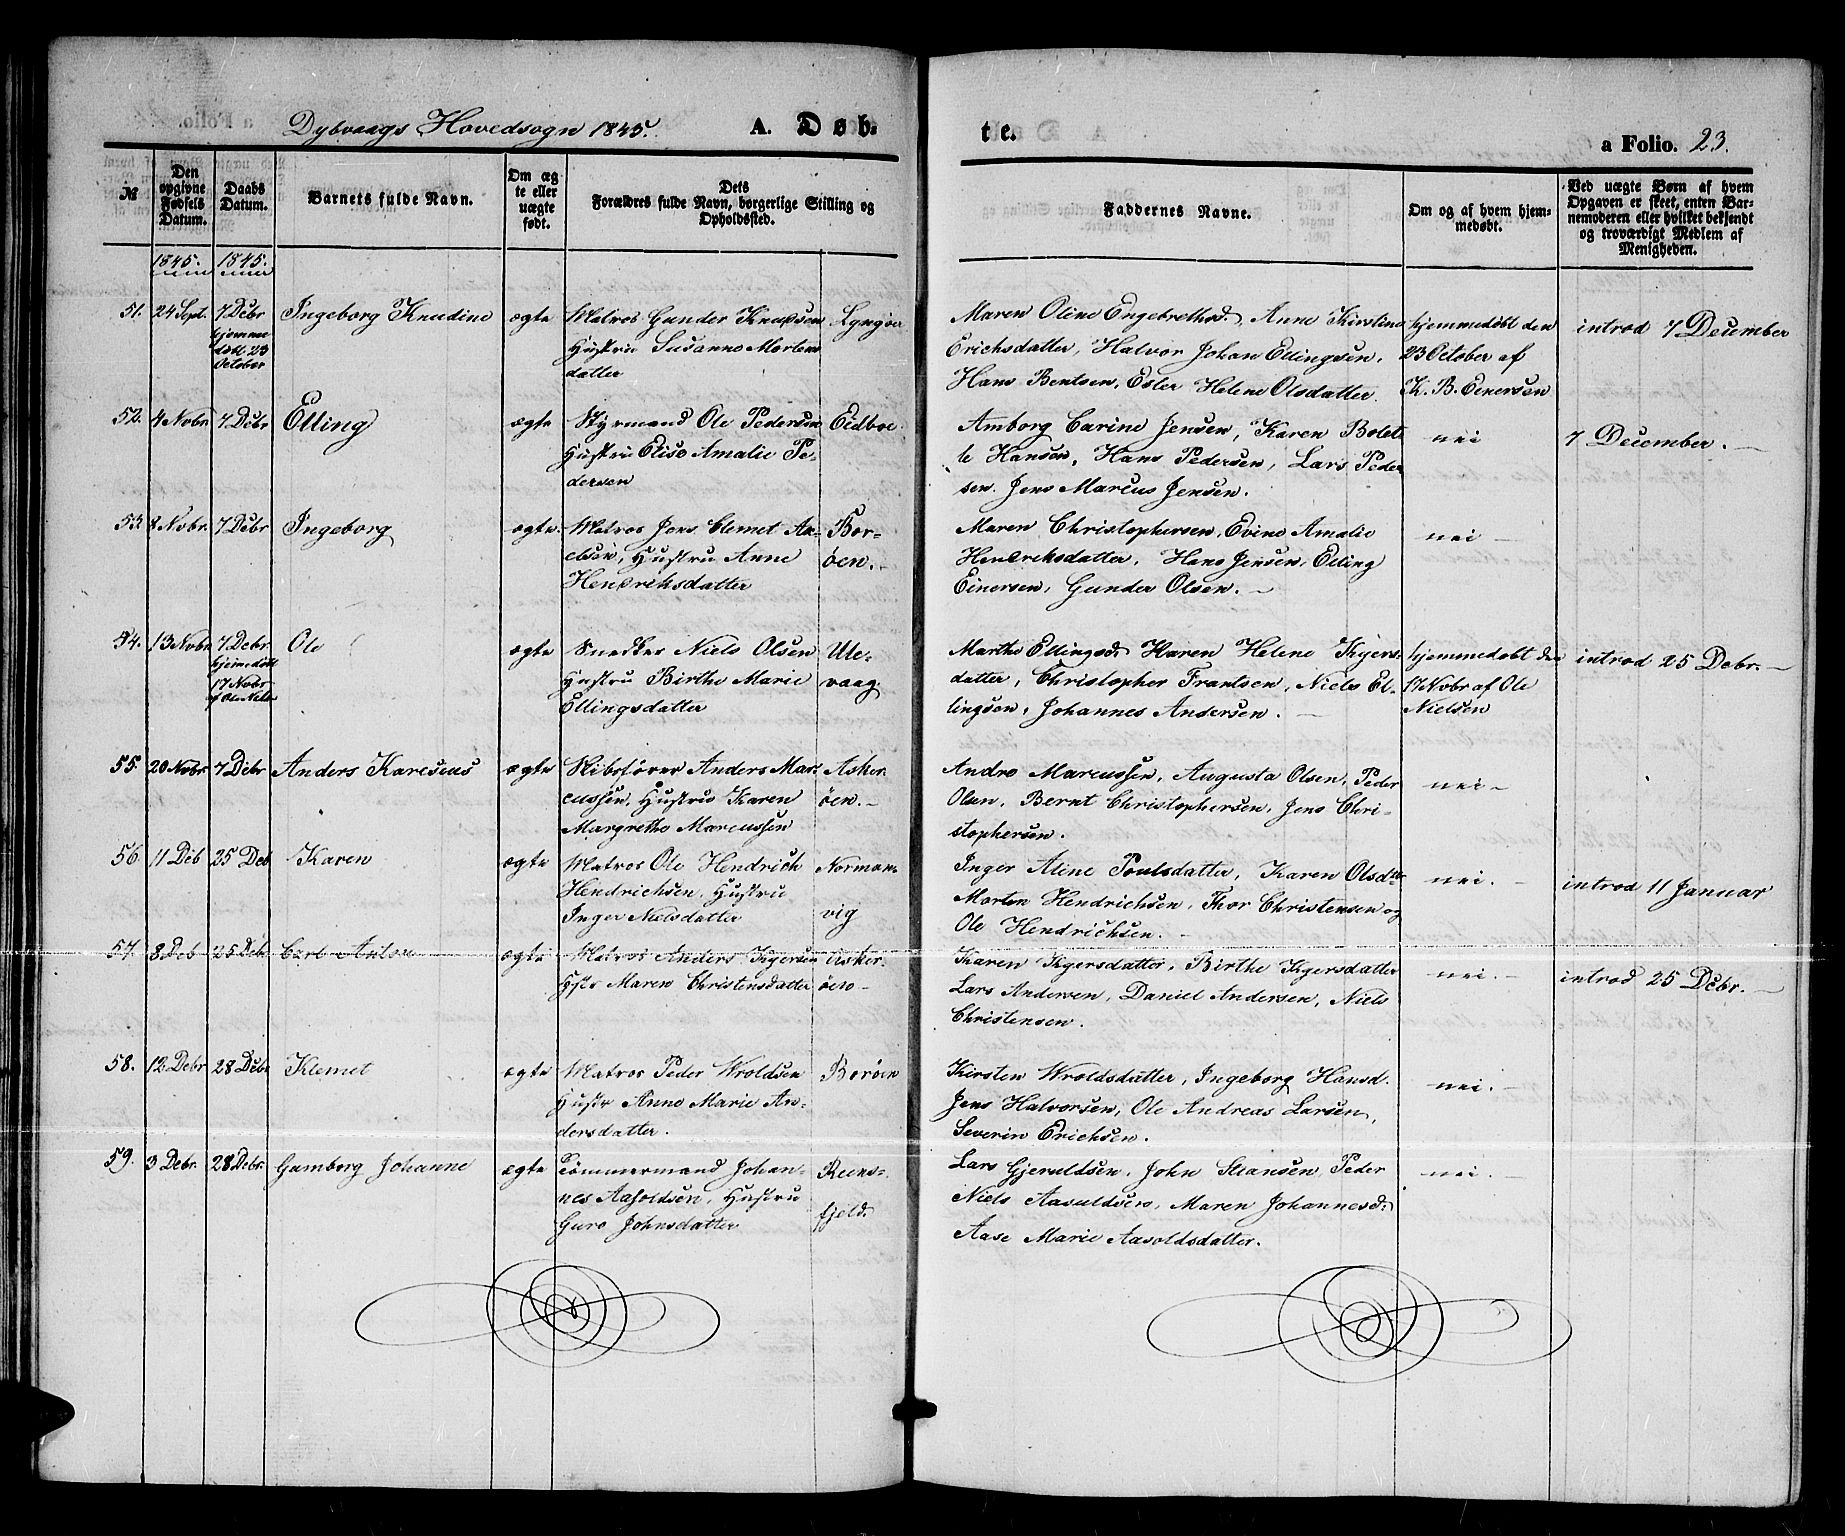 Dybvaags Hovedsogn 1845.
A. Døb-
te.
a Folio. 23.
№
Den opgivne Fødsels Datum.
Daabs Datum.
Barnets fulde Navn.
Om ægte eller uægte født.
Dets Forældres fulde Navn, borgerlige Stilling og Opholdssted.
Faddernes Navne.
Om og af hvem hjemmedøbt.
Ved uægte Børn af hvem Opgaven er skeet, enten Barnemoderen eller hvilket bekjendt og troværdigt Medlem af Menigheden.
1845. 1845.
51. 24 Sept. 7 Debr Ingeborg Knudine ægte Matros Gunder Knudsen Lyngøer
hjemme Hustru Susanne Mortens
døbt 23 datter
October
Maren Oline Engebrethsd., Anne Kirstine hjemmedøbt den introd 7 December
Erichsdatter, Halvor Johan Ellingsen, 23 October af
Hans Bentsen, Ester Helene Olsdatter. K. B. Einersen
52. 4 Nobr 7 Debr Elling ægte Styrmand Ole Pedersen Eidboe
Hustru Elise Amalie Pe-
dersen
Amborg Carine Jensen, Karen Bolet- nei 7 December.
te Hansen, Hans Pedersen, Lars Peder
sen. Jens Marcus Jensen.
53. 8 Nobr. 7 Debr Ingeborg ægte. Matros Jens Clemet Ax- Bor-
elsen, Hustru Anne øen.
Hendriksdatter
Maren Christophersen, Evine Amalie nei
Hendriksdatter, Hans Jensen, Elling
Einersen, Gunder Olsen.
54. 13 Nobr 7 Debr. Ole ægte Snedker Niels Olsen Ule-
hjemdøbt Hustru Birthe Marie vaag.
17 Nobr Ellingsdatter
af Ole Niels
Marthe Ellingsd. Karen Helene Kjers- hjemmedøbt den introd 25 Debr.
datter, Christopher Frantsen, Niels El- 17 Nobr af Ole
lingsen, Johannes Andersen. Nielsen
55. 20 Nobr. 7 Debr Anders Karesius ægte Skibsfører Anders Mar- Asker-
cussen, Hustru Karen øen.
Margrethe Marcussen
Andro Marcussen, Augusta Olsen, Peder nei
Olsen, Bernt Christophersen, Jens Chri-
stophersen.
56. 11 Deb 25 Deb Karen ægte Matros Ole Hendrich Norman-
Hendrichsen, Hustru vig
Inger Nielsdatter
Inger Aline Poulsdatter, Karen Olsdtr nei. introd 11 Januar
Morten Hendrichsen, Thor Christensen og
Ole Hendrichsen.
57. 8 Deb 25 Deb. Carl Anton ægte Matros Anders Kjersen Asker-
Hstr Maren Christensdatter øen
Karen Kjersdatter, Birthe Kjersdatter nei. introd 25 Debr.
Lars Andersen, Daniel Andersen, Niels
Christensen.
58. 12 Debr 28 Debr Klemet ægte Matros Peder Wroldsen Borøen
Hustr Anne Marie An-
dersdatter.
Kirsten Wroldsdatter, Ingeborg Hansd. nei.
Jens Halvorsen, Ole Andreas Larsen,
Severin Erichsen.
59. 3 Debr. 28 Debr. Gamborg Johanne ægte Tømmermand Johan-
nes Aasoldsen, Hustru fjeld.
Guro Johnsdatter
Lars Gjeruldsen, John Stiansen, Peder nei
Niels Aasuldsen, Maren Johannesd.
Aase Marie Aasoldsdatter.